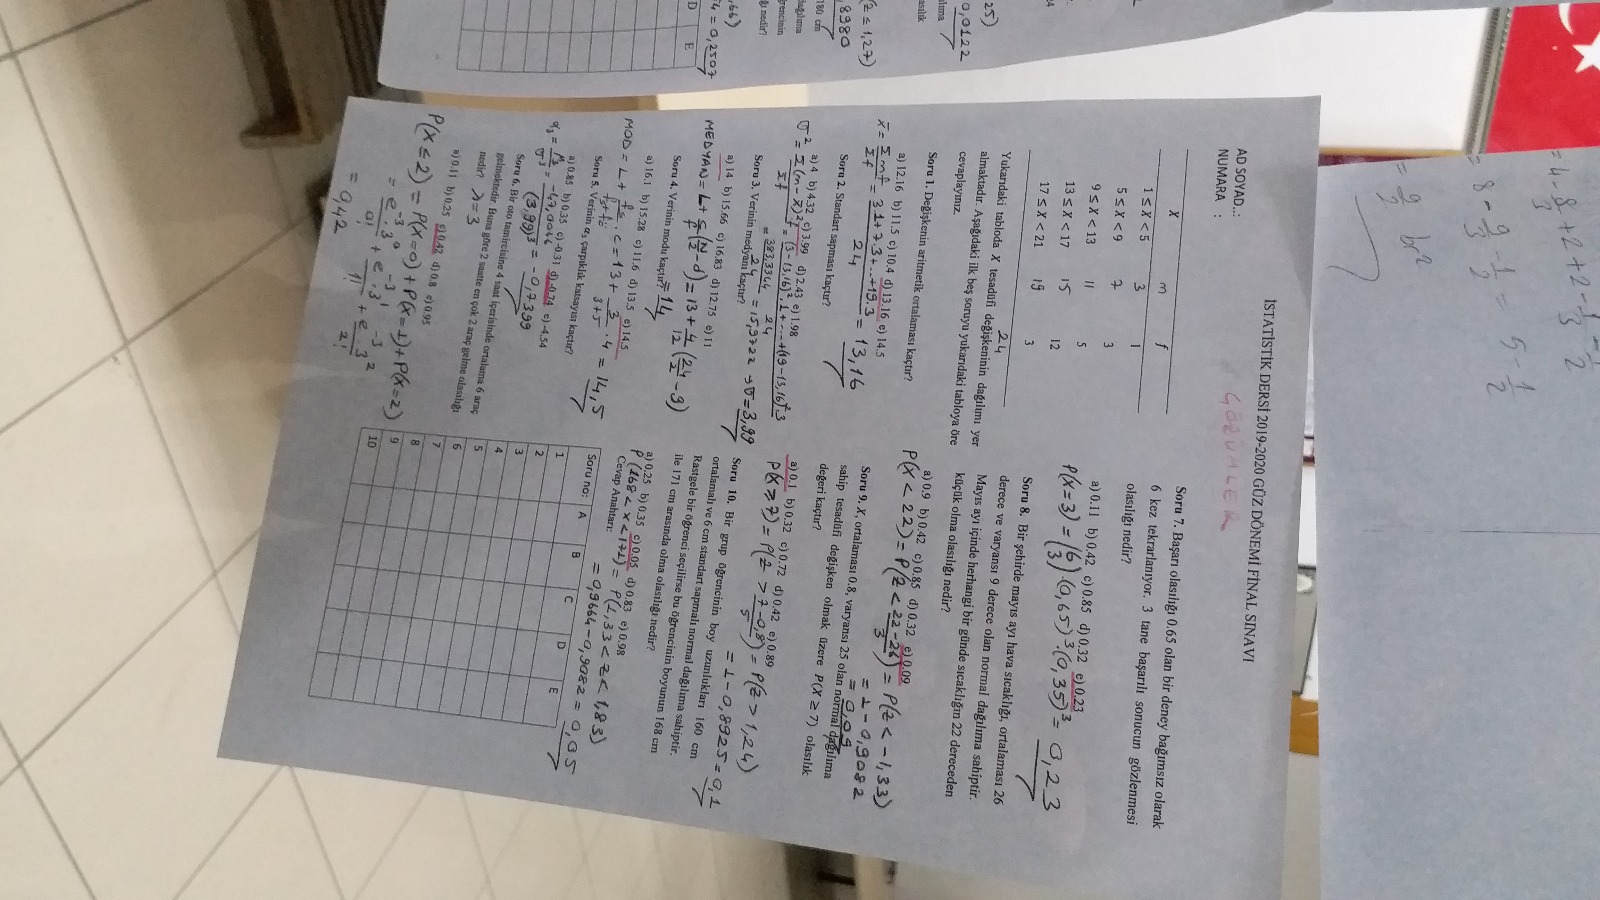 = 4 - 8/3 + 2 + 2 - 1/3 - 1/2
= 8 - 9/3 - 1/2 = 5 - 1/2
= 9/2 br²
İSTATİSTİK DERSİ 2019-2020 GÜZ DÖNEMİ FİNAL SINAVI
ÇÖZÜMLER
AD SOYAD..:
NUMARA :
X m f
1 ≤ X < 5 3 1
5 ≤ X < 9 7 3
9 ≤ X < 13 11 5
13 ≤ X < 17 15 12
17 ≤ X < 21 19 3
24
Yukarıdaki tabloda X tesadüfi değişkeninin dağılımı yer
almaktadır. Aşağıdaki ilk beş soruyu yukarıdaki tabloya öre
cevaplayınız.
Soru 1. Değişkenin aritmetik ortalaması kaçtır?
a) 12.16 b) 11.5 c) 10.4 d) 13.16 e) 14.5
x̄ = Σmf/Σf = (3.1+7.3+...+19.3)/24 = 13,16
Soru 2. Standart sapması kaçtır?
a) 4 b) 4.32 c) 3.99 d) 2.43 e) 1.98
σ² = Σ(m-x̄)²f/Σf = ((3-13,16)².1+...+(19-13,16)².3)/24
= 383,3344/24 = 15,9722 → σ = 3,99
Soru 3. Verinin medyanı kaçtır?
a) 14 b) 15.66 c) 16.83 d) 12.75 e) 11
MEDYAN = L + c/f (N/2 - d) = 13 + 4/12 (24/2 - 9)
= 14
Soru 4. Verinin modu kaçtır?
a) 16.1 b) 15.28 c) 11.6 d) 13.5 e) 14.5
MOD = L + fs/(fs+fö) . c = 13 + 3/(3+5) . 4 = 14,5
Soru 5. Verinin α₃ çarpıklık katsayısı kaçtır?
a) 0.85 b) 0.35 c) -0.31 d) -0.74 e) -4.54
α₃ = μ₃/σ³ = -47,0066/(3,99)³ = -0,7399
Soru 6. Bir oto tamircisine 4 saat içerisinde ortalama 6 araç
gelmektedir. Buna göre 2 saatte en çok 2 araç gelme olasılığı
nedir? λ=3
a) 0.11 b) 0.25 c) 0.42 d) 0.8 e) 0.95
P(X ≤ 2) = P(X=0) + P(X=1) + P(X=2)
= e⁻³.3⁰/0! + e⁻³.3¹/1! + e⁻³.3²/2!
= 0,42
Soru 7. Başarı olasılığı 0.65 olan bir deney bağımsız olarak
6 kez tekrarlanıyor. 3 tane başarılı sonucun gözlenmesi
olasılığı nedir?
a) 0.11 b) 0.42 c) 0.85 d) 0.32 e) 0.23
P(X=3) = (6 3).(0,65)³.(0,35)³ = 0,23
Soru 8. Bir şehirde mayıs ayı hava sıcaklığı, ortalaması 26
derece ve varyansı 9 derece olan normal dağılıma sahiptir.
Mayıs ayı içinde herhangi bir günde sıcaklığın 22 dereceden
küçük olma olasılığı nedir?
a) 0.9 b) 0.42 c) 0.85 d) 0.32 e) 0.09
P(X < 22) = P(Z < (22-26)/3) = P(Z < -1,33)
= 1 - 0,9082
= 0,09
Soru 9. X, ortalaması 0.8, varyansı 25 olan normal dağılıma
sahip tesadüfi değişken olmak üzere P(X ≥ 7) olasılık
değeri kaçtır?
a) 0.1 b) 0.32 c) 0.72 d) 0.42 e) 0.89
P(X ≥ 7) = P(Z > (7-0,8)/5) = P(Z > 1,24)
= 1 - 0,8925 = 0,1
Soru 10. Bir grup öğrencinin boy uzunlukları 160 cm
ortalamalı ve 6 cm standart sapmalı normal dağılıma sahiptir.
Rastgele bir öğrenci seçilirse bu öğrencinin boyunun 168 cm
ile 171 cm arasında olma olasılığı nedir?
a) 0.25 b) 0.35 c) 0.05 d) 0.83 e) 0.98
P(168 < X < 171) = P(1,33 < Z < 1,83)
= 0,9664 - 0,9082 = 0,05
Cevap Anahtarı:
Soru no: A B C D E
1
2
3
4
5
6
7
8
9
10
25)
0,0122
(Z ≤ 1,27)
8980
180 cm
nedir?
,66)
4 = 0,2507
D E